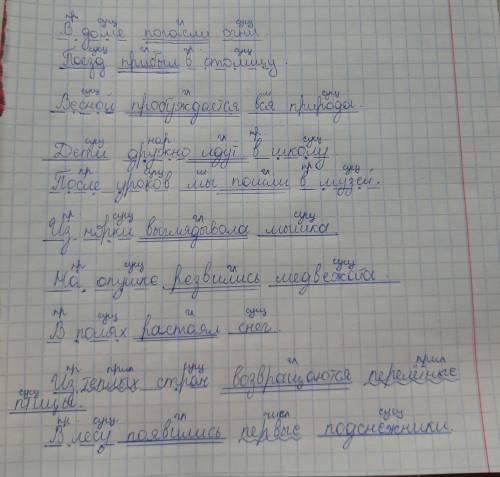 пр сущ гл сущ
В доме погасли огни.
сущ гл пр сущ
Поезд прибыл в столицу.
гл сущ
Весной пробуждается вся природа.
сущ нар гл пр сущ
Дети дружно идут в школу
пр сущ гл пр сущ
После уроков мы пошли в музей.
пр сущ гл сущ
Из норки выглядывала мышка
пр сущ гл сущ
На опушке резвились медвежата.
пр сущ гл сущ
В полях растаял снег
пр прил сущ гл прил
Из тёплых стран возвращаются перелётные
сущ
птицы.
пр сущ гл числ сущ
В лесу появились первые подснежники.